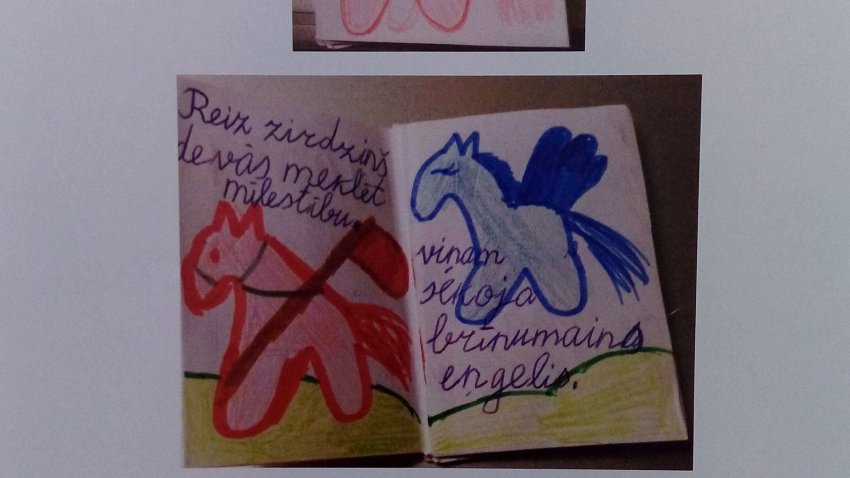 Reiz zirdziņš
devās meklēt
mīlestību.
viņam
sekoja
brīnumaina
eņģelis.